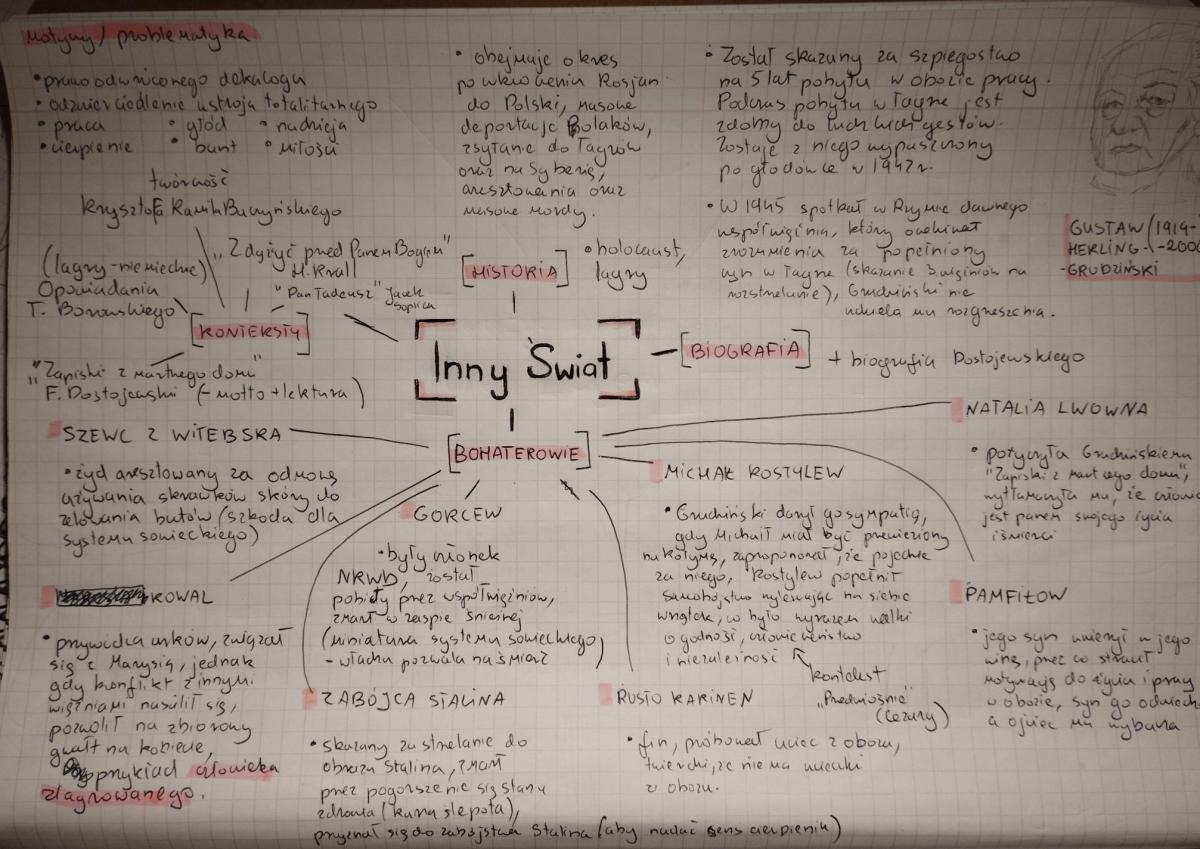 Motywy/problematyka
• prawo odwróconego dekalogu
• odzwierciedlenie ustroju totalitarnego
• praca • głód • nadzieja
• cierpienie • bunt • miłość
• obejmuje okres
po wkroczeniu Rosjan
do Polski, masowe
deportacje Polaków,
zsyłanie do łagrów
oraz na Syberię,
aresztowania oraz
masowe mordy.
• holocaust,
łagry
[HISTORIA]
• Został skazany za szpiegostwo
na 5 lat pobytu w obozie pracy.
Podczas pobytu w łagrze jest
zdolny do ludzkich gestów.
Zostaje z niego wypuszczony
po głodówce w 1942r.
• W 1945 spotkał w Rzymie dawnego
współwięźnia, który oczekiwał
zrozumienia za popełniony
czyn w łagrze (skazanie 3 więźniów na
rozstrzelanie), Grudziński nie
udziela mu rozgrzeszenia.
GUSTAW (1919-
HERLING- -2000
-GRUDZIŃSKI
[BIOGRAFIA] + biografia Dostojewskiego
twórczość
Krzysztofa Kamila Baczyńskiego
"Zdążyć przed Panem Bogiem"
H. Krall
(lagry-niemieckie)
Opowiadania
T. Borowskiego
"Pan Tadeusz" Jacek
Soplica
[KONTEKSTY]
"Zapiski z martwego domu"
F. Dostojewski (-motto+lektura)
[Inny Świat]
[BOHATEROWIE]
SZEWC Z WITEBSKA
• żyd aresztowany za odmowę
używania skrawków skóry do
zelowania butów (szkoda dla
systemu sowieckiego)
KOWAL
• przywódca urków, związał
się z Marysią, jednak
gdy konflikt z innymi
więźniami nasilił się,
pozwolił na zbiorowy
gwałt na kobiecie,
przykład człowieka
zlagrowanego.
GORCEW
• były członek
NKWD, został
pobity przez współwięźniów,
zmarł w zaspie śnieżnej
(miniatura systemu sowieckiego,
- władza pozwala na śmierć)
ZABÓJCA STALINA
• skazany za strzelanie do
obrazu Stalina, zmarł
przez pogorszenie się stanu
zdrowia (kurza ślepota),
przyznał się do zabójstwa Stalina (aby nadać sens cierpieniu)
MICHAŁ KOSTYLEW
• Grudziński darzył go sympatią,
gdy Michaił miał być przewieziony
na Kołymę, zaproponował, że pojedzie
za niego, Kostylew popełnił
samobójstwo wylewając na siebie
wrzątek, co było wyrazem walki
o godność, człowieczeństwo
i niezależność
kontekst
"Przedwiośnie"
(Cezary)
RUSTO KARINEN
• fin, próbował uciec z obozu,
twierdzi, że nie ma ucieczki
z obozu.
NATALIA LWOWNA
• pożyczyła Grudzińskiemu
"Zapiski z martwego domu",
wytłumaczyła mu, że człowiek
jest panem swojego życia
i śmierci
PAMFIŁOW
• jego syn uwierzył w jego
winę, przez co stracił
motywację do życia i pracy
w obozie, syn go odwiedza
a ojciec mu wybacza